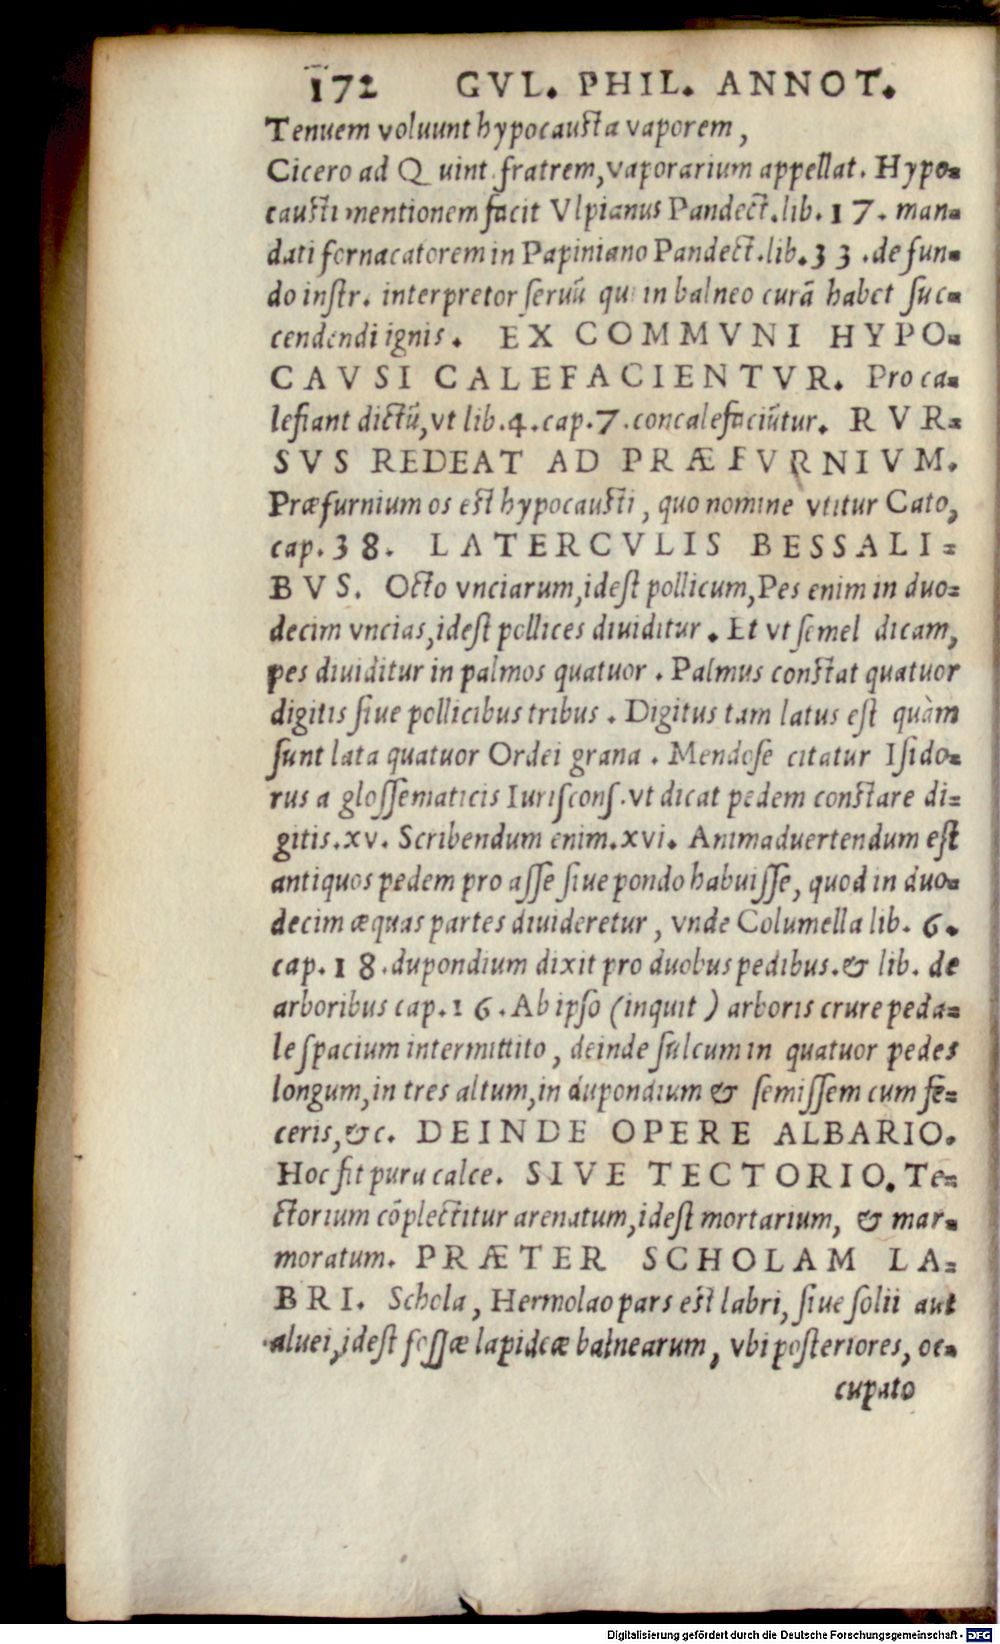 172 GVL. PHIL. ANNOT.
Tenuem voluunt hypocausta vaporem,
Cicero ad Quint. fratrem, vaporarium appellat. Hypo=
causti mentionem facit Vlpianus Pandect. lib. 17. man=
dati fornacatorem in Papiniano Pandect. lib. 33. de fun=
do inſtr. interpretor ſeruũ qui in balneo curã habet ſuc=
cendendi ignis. EX COMMVNI HYPO=
CAVSI CALEFACIENTVR. Pro ca=
lefiant dictũ, vt lib. 4. cap. 7. concalefaciũtur. RVR=
SVS REDEAT AD PRÆFVRNIVM.
Præfurnium os est hypocausti, quo nomine vtitur Cato,
cap. 38. LATERCVLIS BESSALI=
BVS. Octo vnciarum, ideſt pollicum, Pes enim in duo=
decim vncias, ideſt pollices diuiditur. Et vt ſemel dicam,
pes diuiditur in palmos quatuor. Palmus constat quatuor
digitis ſiue pollicibus tribus. Digitus tam latus eſt quàm
ſunt lata quatuor Ordei grana. Mendoſe citatur Iſido=
rus a gloſſematicis Iuriſconſ. vt dicat pedem constare di=
gitis. xv. Scribendum enim. xvi. Animaduertendum eſt
antiquos pedem pro aſſe ſiue pondo habuiſſe, quod in duo=
decim æquas partes diuideretur, vnde Columella lib. 6.
cap. 18. dupondium dixit pro duobus pedibus. & lib. de
arboribus cap. 16. Ab ipſo (inquit) arboris crure peda=
le ſpacium intermittito, deinde ſulcum in quatuor pedes
longum, in tres altum, in dupondium & ſemiſſem cum fe=
ceris, &c. DEINDE OPERE ALBARIO.
Hoc fit pura calce. SIVE TECTORIO. Te=
ctorium cõplectitur arenatum, ideſt mortarium, & mar=
moratum. PRÆTER SCHOLAM LA=
BRI. Schola, Hermolao pars est labri, ſiue ſolii aut
aluei, ideſt foſſæ lapideæ balnearum, vbi poſteriores, oc=
cupato
Digitalisierung gefördert durch die Deutsche Forschungsgemeinschaft - DFG